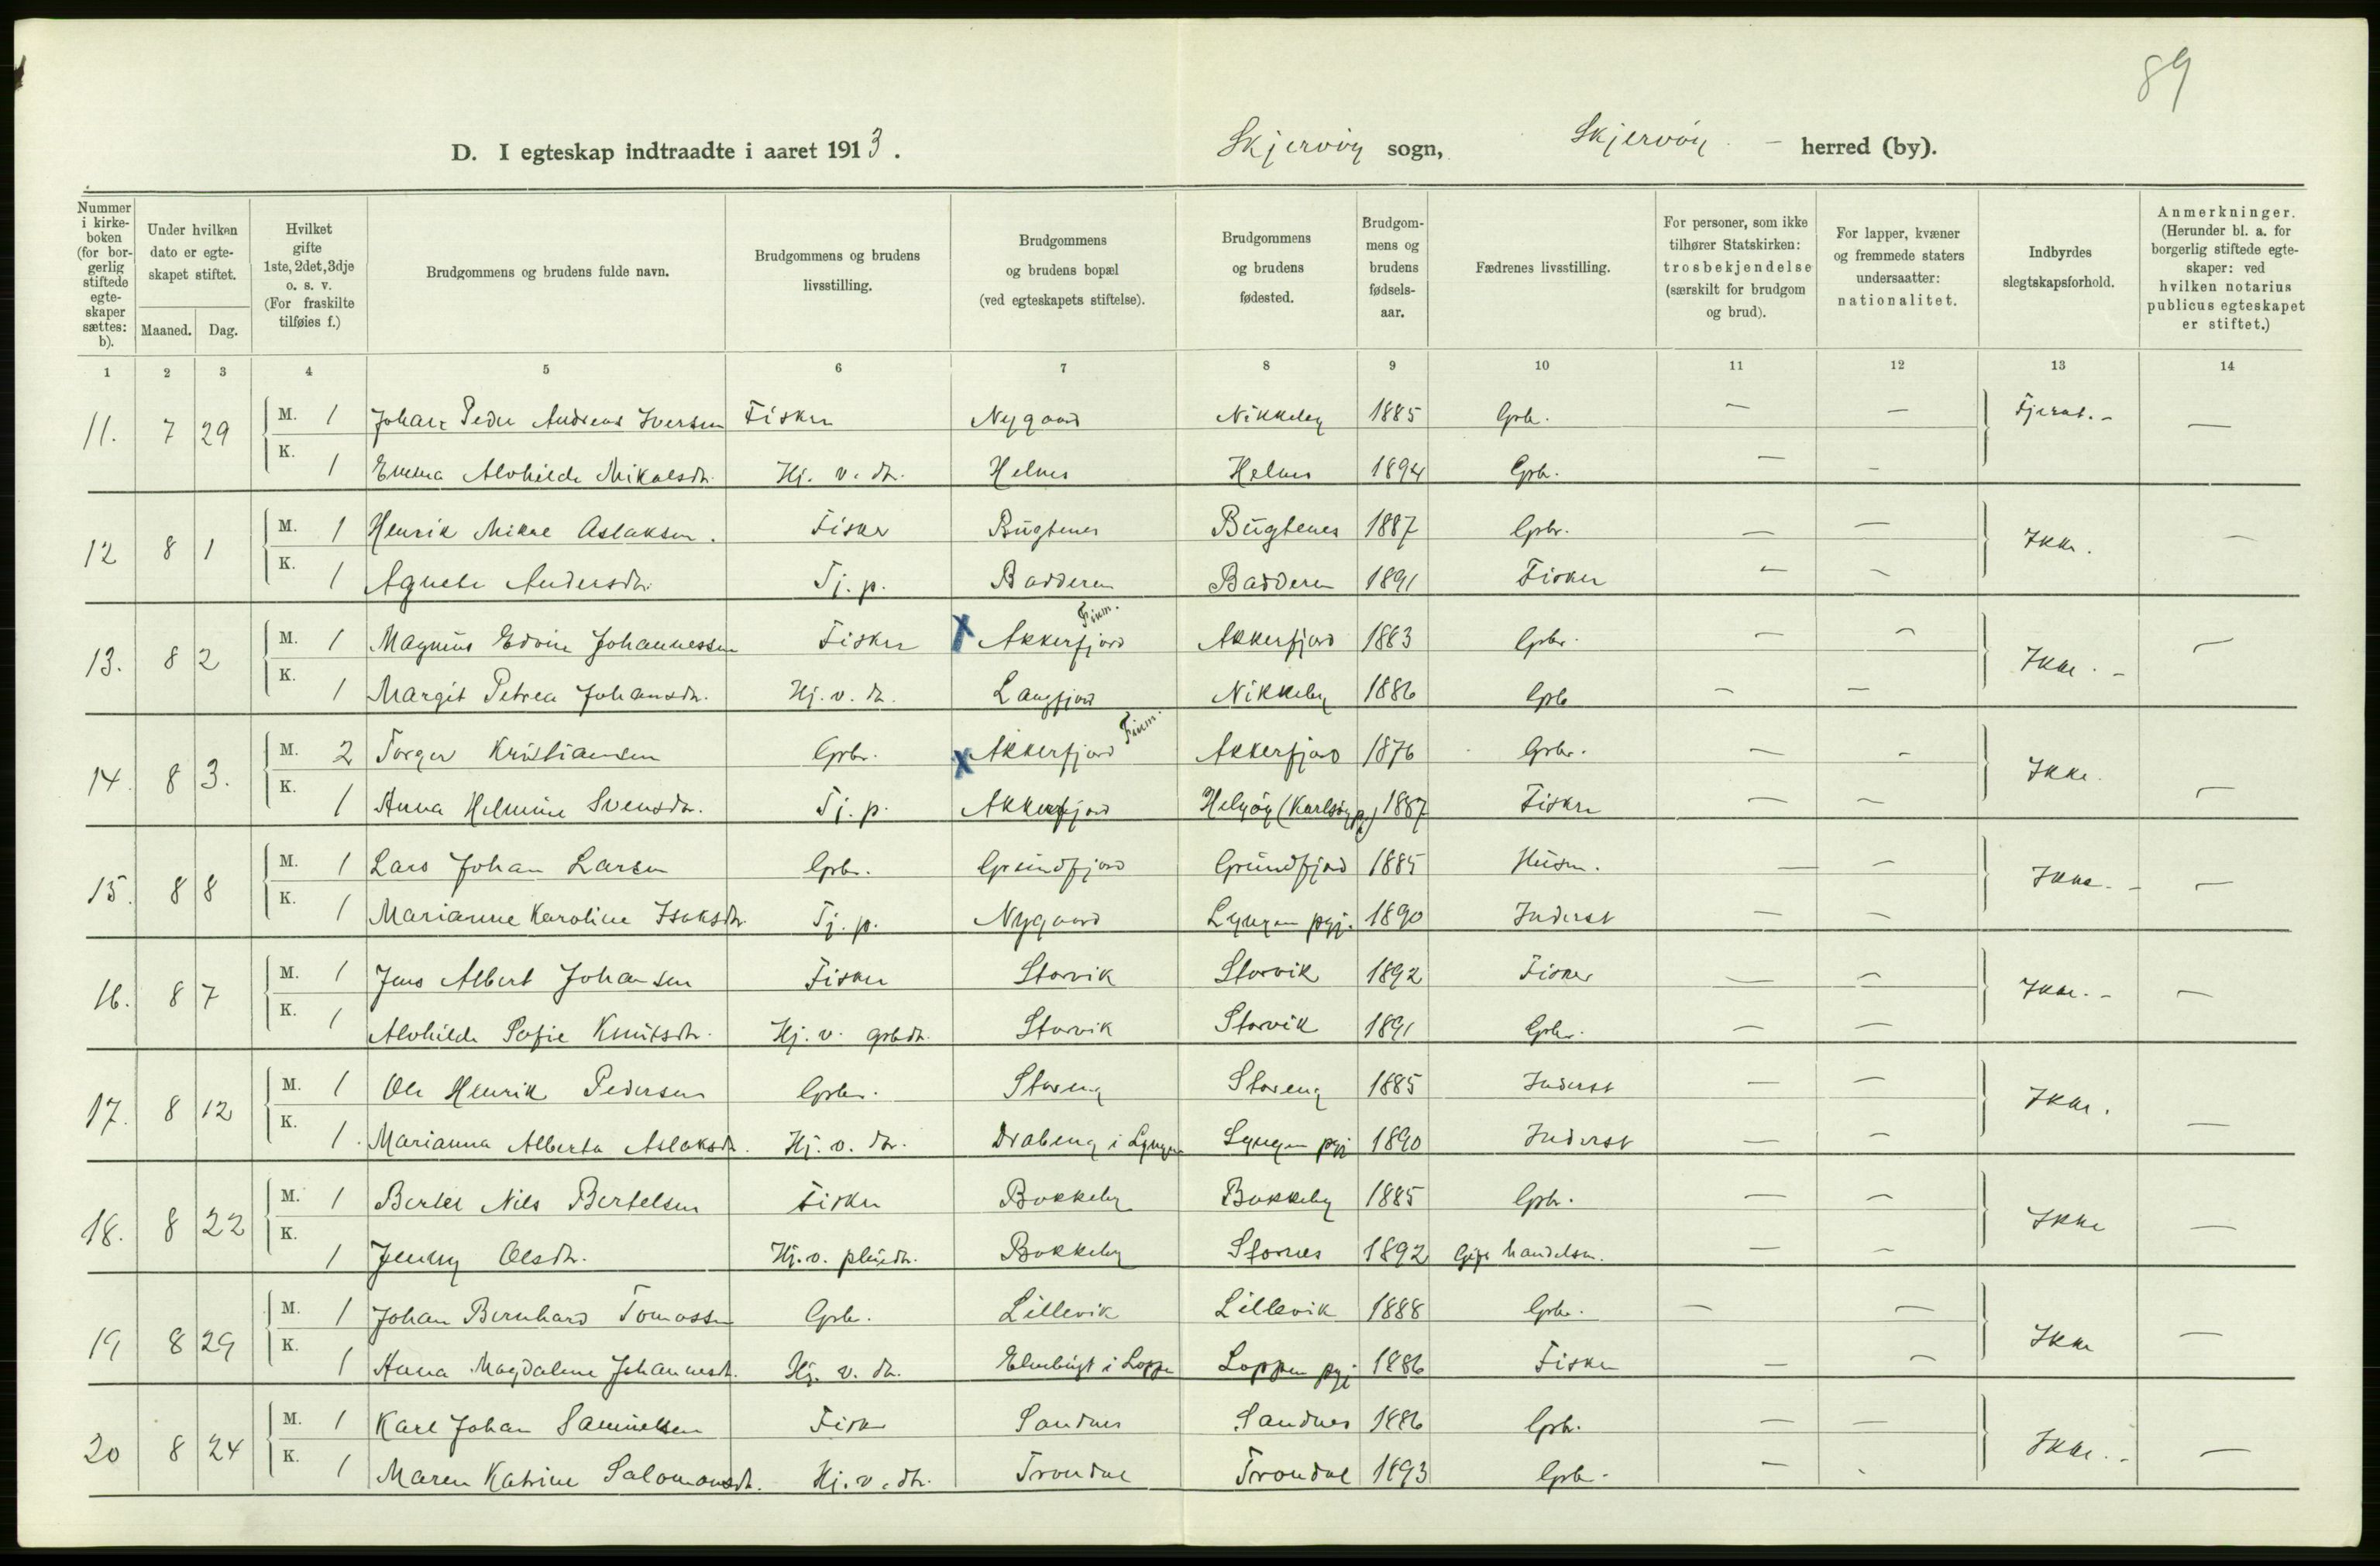 89
D. I egteskap indtraadte i aaret 1913. Skjervöy sogn, Skjervöy. - herred (by).
Nummer i kirkeboken (for borgerlig stiftede egteskaper sættes: b). Under hvilken dato er egteskapet stiftet. Maaned. Dag. Hvilket gifte 1ste, 2det, 3dje o. s. v. (For fraskilte tilføies f.) Brudgommens og brudens fulde navn. Brudgommens og brudens livsstilling. Brudgommens og brudens bopæl (ved egteskapets stiftelse). Brudgommens og brudens fødested. Brudgommens og brudens fødselsaar. Fædrenes livsstilling. For personer, som ikke tilhører Statskirken: trosbekjendelse (særskilt for brudgom og brud). For lapper, kvæner og fremmede staters undersaatter: nationalitet. Indbyrdes slegtskapsforhold. Anmerkninger. (Herunder bl. a. for borgerlig stiftede egteskaper: ved hvilken notarius publicus egteskapet er stiftet.)
1 2 3 4 5 6 7 8 9 10 11 12 13 14
11. 7 29 M. 1 Johan Peder Andreas Iversen Fisker Nygaard Nikkeby 1885 Grb. — — Fjernt. - —
K. 1 Emma Alvhilde Mikalsdtr. Hj. v. dtr. Helnes Helnes 1894 Grb. — -
12 8 1 M. 1 Henrik Mikal Aslaksen. Fisker Bugtenes Bugtenes 1887 Grbr. — — Ikke. —
K. 1 Agnete Andersdtr. Tj. p. Badderen Badderen 1891 Fisker — -
13. 8 2 M. 1 Magnus Edvin Johannessen Fisker X Akkerfjord Finm. Akkerfjord 1883 Gbr. — — Ikke. - —
K. 1 Margit Petrea Johansdtr. Hj. v. dtr. Langfjord Nikkeby 1886 Grb — —
14. 8 3. M. 2 Torger Kristiansen Grbr. X Akkerfjord Finm. Akkerfjord 1876 Grbr. — - Ikke. —
K. 1 Anna Helmine Svensdtr. Tj. p. Akkerfjord Helgöy (Karlsöy pgj) 1887 Fisker — —
15. 8 8 M. 1 Lars Johan Larsen Grbr. Grundfjord Grundfjord 1885 Husm. — — Ikke. - —
K. 1 Marianne Karoline Isaksdtr. Tj. p. Nygaard Lyngen pgj. 1890 Inderst — —
16. 8 7 M. 1 Jens Albert Johansen Fisker Storvik Storvik 1892 Fisker — — Ikke. - —
K. 1 Alvhilde Sofie Knutsdtr. Hj. v. grbdtr. Storvik Storvik 1891 Grbr. — —
17. 8 12 M. 1 Ole Henrik Pedersen Grbr. Storeng Storeng 1885 Inderst — — Ikke. —
K. 1. Marianna Alberta Aslaksdtr. Hj. v. dtr. Drabeng i Lyngen Lyngen pgj 1890 Inderst — —
18. 8 22 M. 1 Bertel Nils Bertelsen Fisker Bakkeby Bakkeby 1885 Grbr. — — Ikke —
K. 1 Jenny Olsdtr. Hj. v. pleiedtr. Bakkeby Stornes 1892 handelsm. — -
19 8 29 M. 1 Johan Bernhard Tomassen Grbr. Lillevik Lillevik 1888 Grbr. — — Ikke —
K. 1 Anna Magdalene Johannesdtr. Hj. v. dtr. i Loppen Loppen pgj 1886 Fisker — —
20 8 24 M. 1 Karl Johan Samuelsen Fisker Sandnes Sandnes 1886 Grb. — — Ikke. - —
K. 1 Maren Katrine Salomonsdtr. Hj. v. dtr. Trondal Trondal 1893 Grb. — -